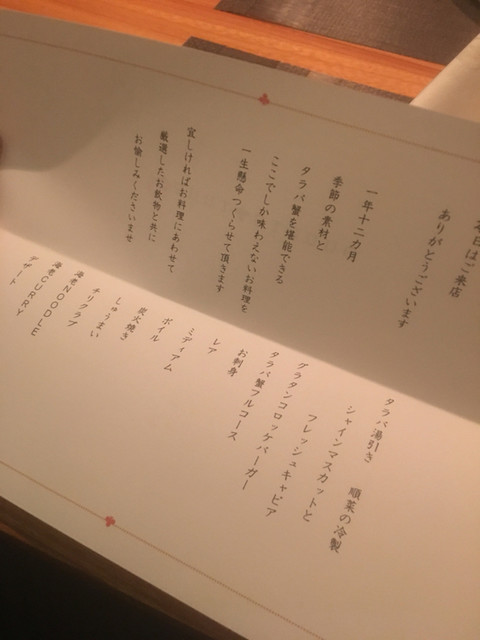 本日はご来店
ありがとうございます
一年十二カ月
季節の素材と
タラバ蟹を堪能できる
ここでしか味わえないお料理を
一生懸命つくらせて頂きます
宜しければお料理にあわせて
厳選したお飲物と共に
お愉しみくださいませ
タラバ湯引き 順菜の冷製
シャインマスカットと
フレッシュキャビア
グラタンコロッケバーガー
タラバ蟹フルコース
お刺身
レア
ミディアム
ボイル
炭火焼き
しゅうまい
チリクラブ
海老NOODLE
海老CURRY
デザート